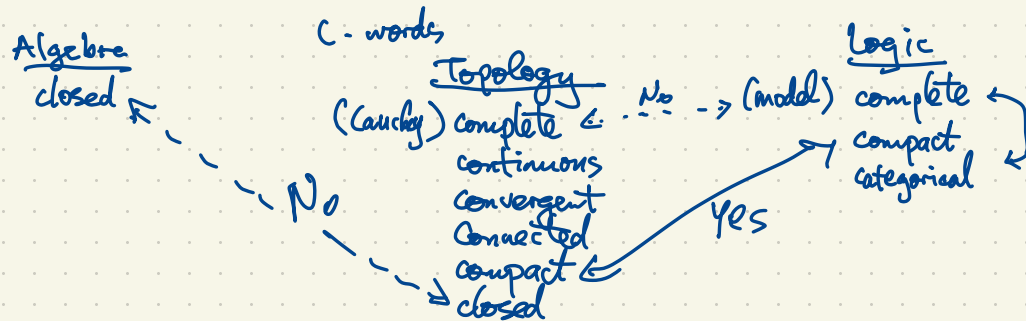 C-words
Algebra
closed
Topology
(Cauchy) complete
continuous
convergent
connected
compact
closed
Logic
(model) complete
compact
categorical
No
No
Yes